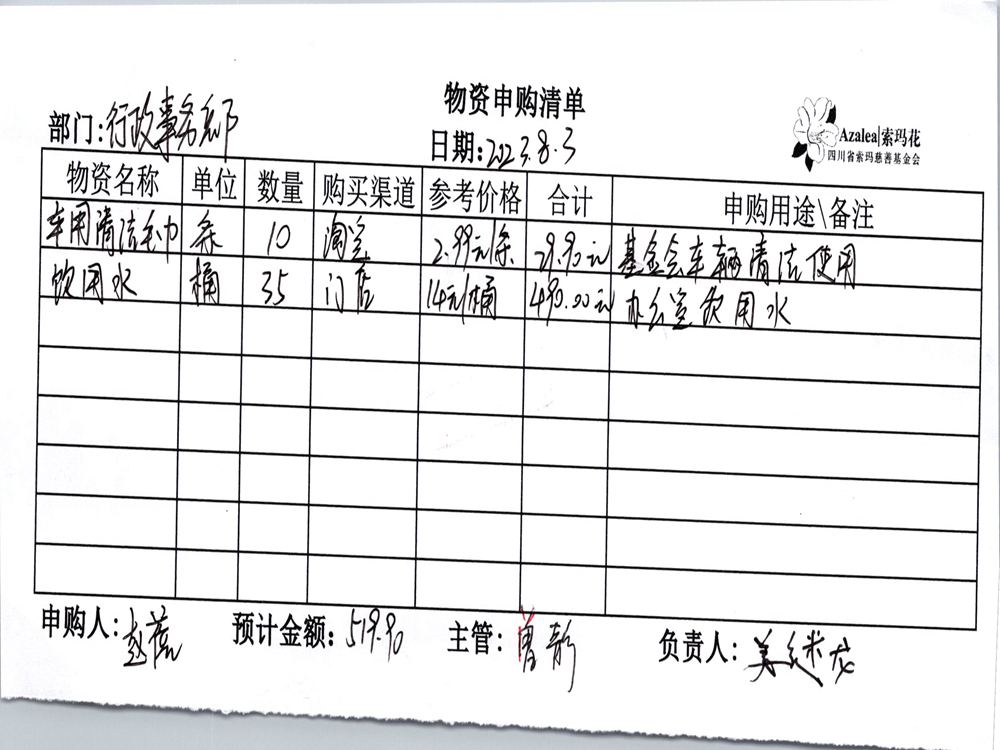 物资申购清单
部门:行政事务部
日期:2023.8.3
Azalea|索玛花
四川省索玛慈善基金会
物资名称 单位 数量 购买渠道 参考价格 合计 申购用途\备注
车用清洁毛巾 条 10 淘宝 2.99元/条 29.90元 基金会车辆清洁使用
饮用水 桶 35 门店 14元/桶 490.00元 办公室饮用水
申购人: 预计金额:519.90 主管: 负责人: